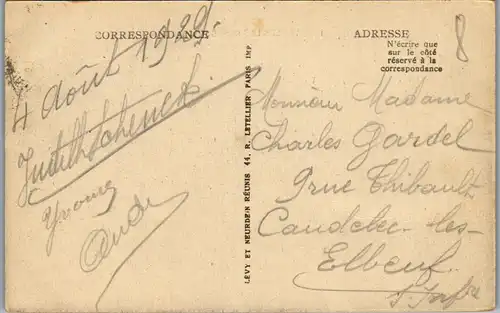 CORRESPONDANCE
4 Août 1929.
Judith Schenck
Yvonne
André
LÉVY ET NEURDEIN RÉUNIS 44, R. LETELLIER, PARIS IMP
ADRESSE
N'écrire que
sur le côté
réservé à la
correspondance
8
Monsieur Madame
Charles Gardel
9 rue Thibault
Caudebec-les-
Elbeuf
S. Infre